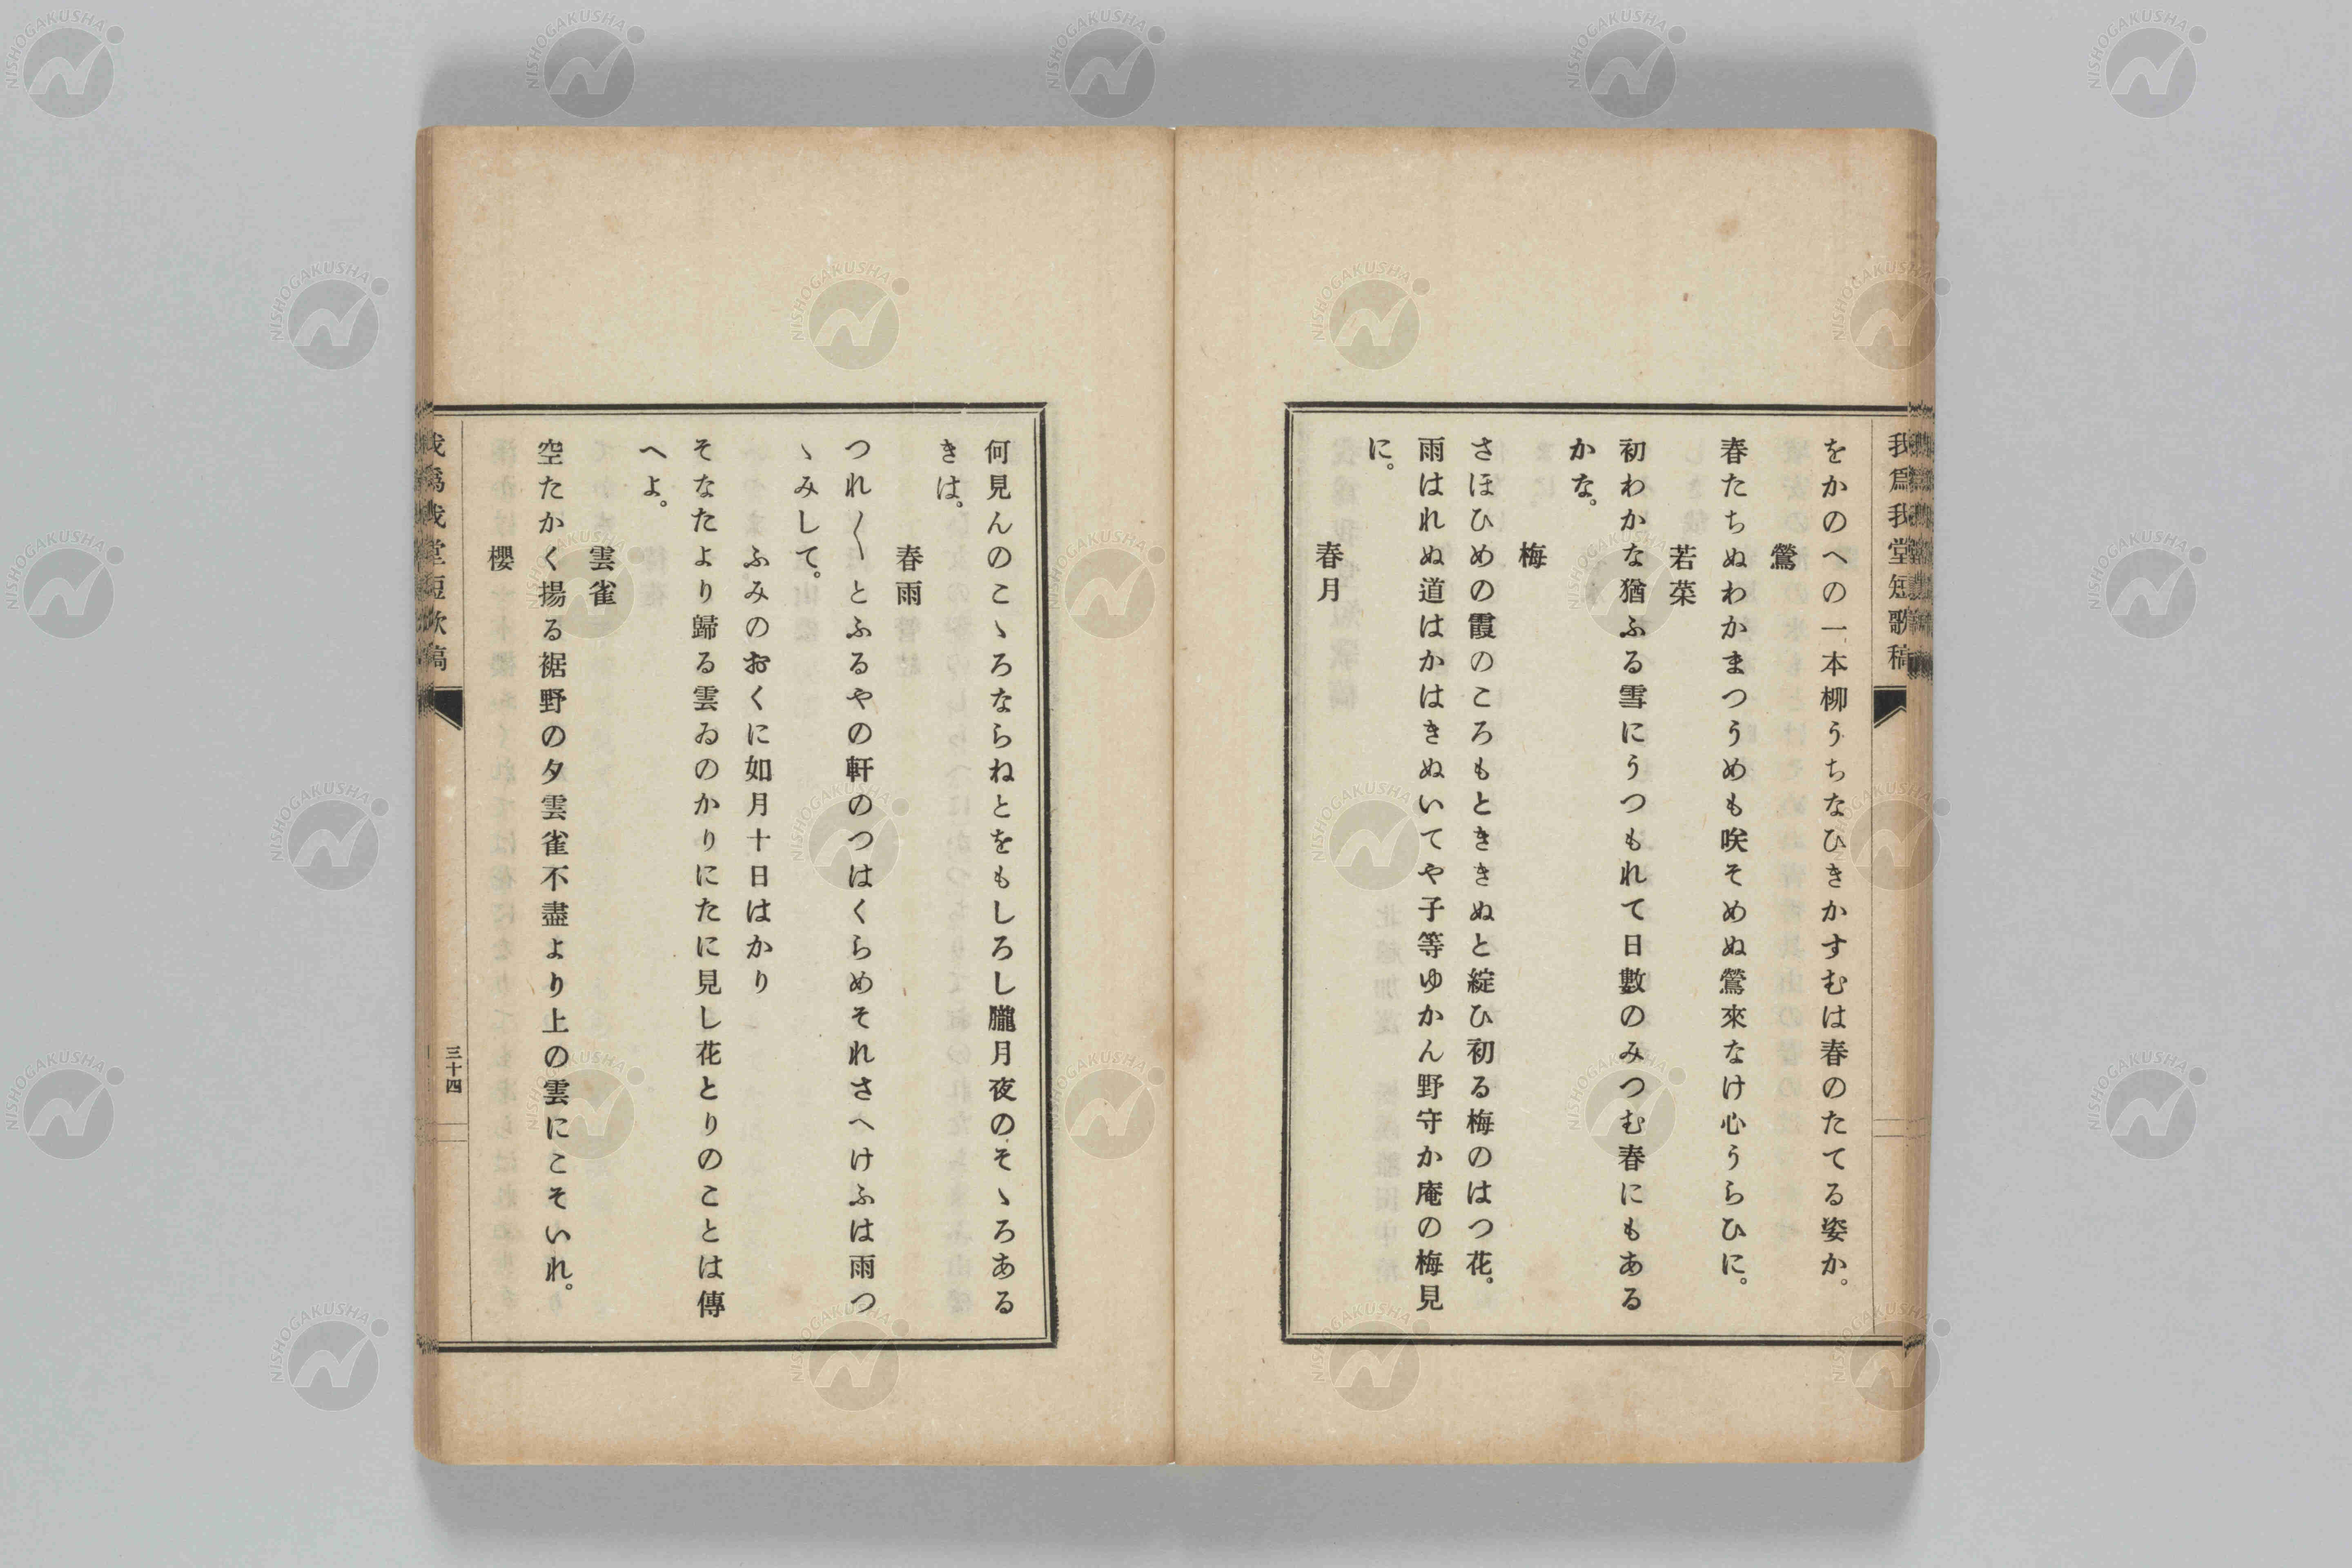 我爲我堂短歌稿
をかのへの一本柳うちなひきかすむは春のたてる姿か。
鶯
春たちぬわかまつうめも咲そめぬ鶯來なけ心うらひに。
若菜
初わかな猶ふる雪にうつもれて日數のみつむ春にもある
かな。
梅
さほひめの霞のころもときぬと綻ひ初る梅のはつ花。
雨はれぬ道はかはきぬいてや子等ゆかん野守か庵の梅見
に。
春月
何見んのこゝろならねとをもしろし朧月夜のそゝろある
きは。
春雨
つれ〱とふるやの軒のつはくらめそれさへけふは雨つ
ゝみして。
ふみのおくに如月十日はかり
そなたより歸る雲ゐのかりにたに見し花とりのことは傳
へよ。
雲雀
空たかく揚る裾野の夕雲雀不盡より上の雲にこそいれ。
櫻
我爲我堂短歌稿
三十四
NISHOGAKUSHA